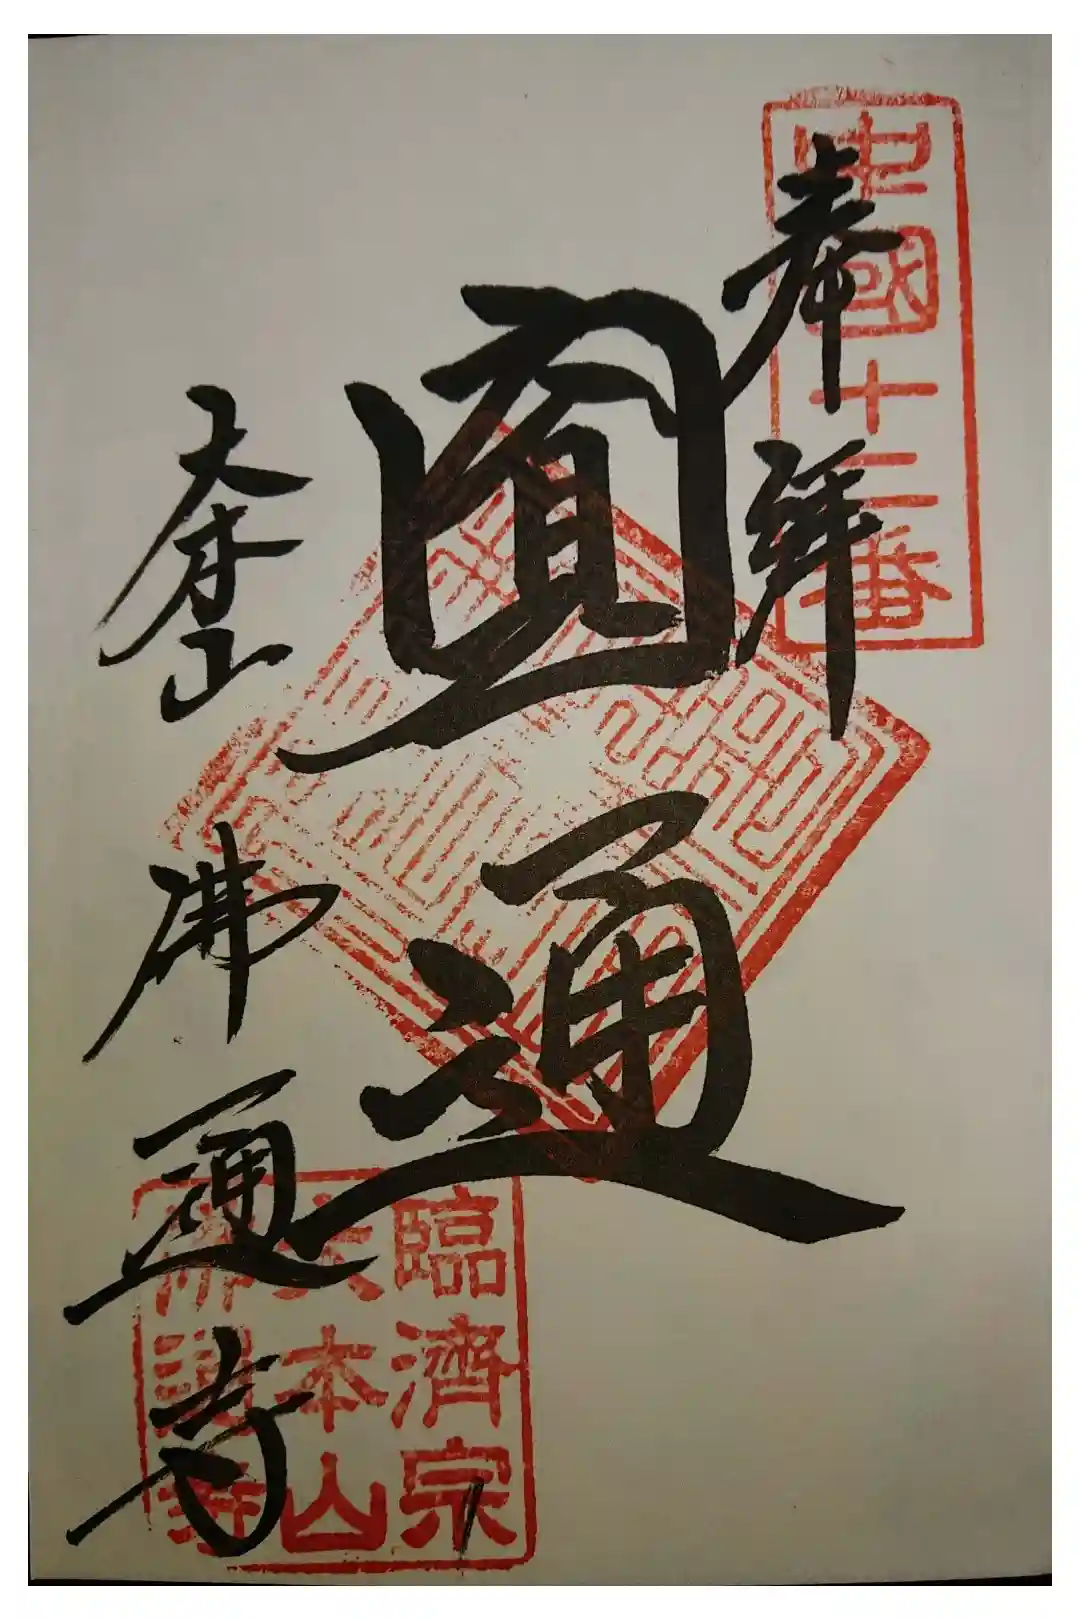 中國十二番
奉拝
圓通
大本山
佛通寺
臨濟宗
大本山
佛通寺